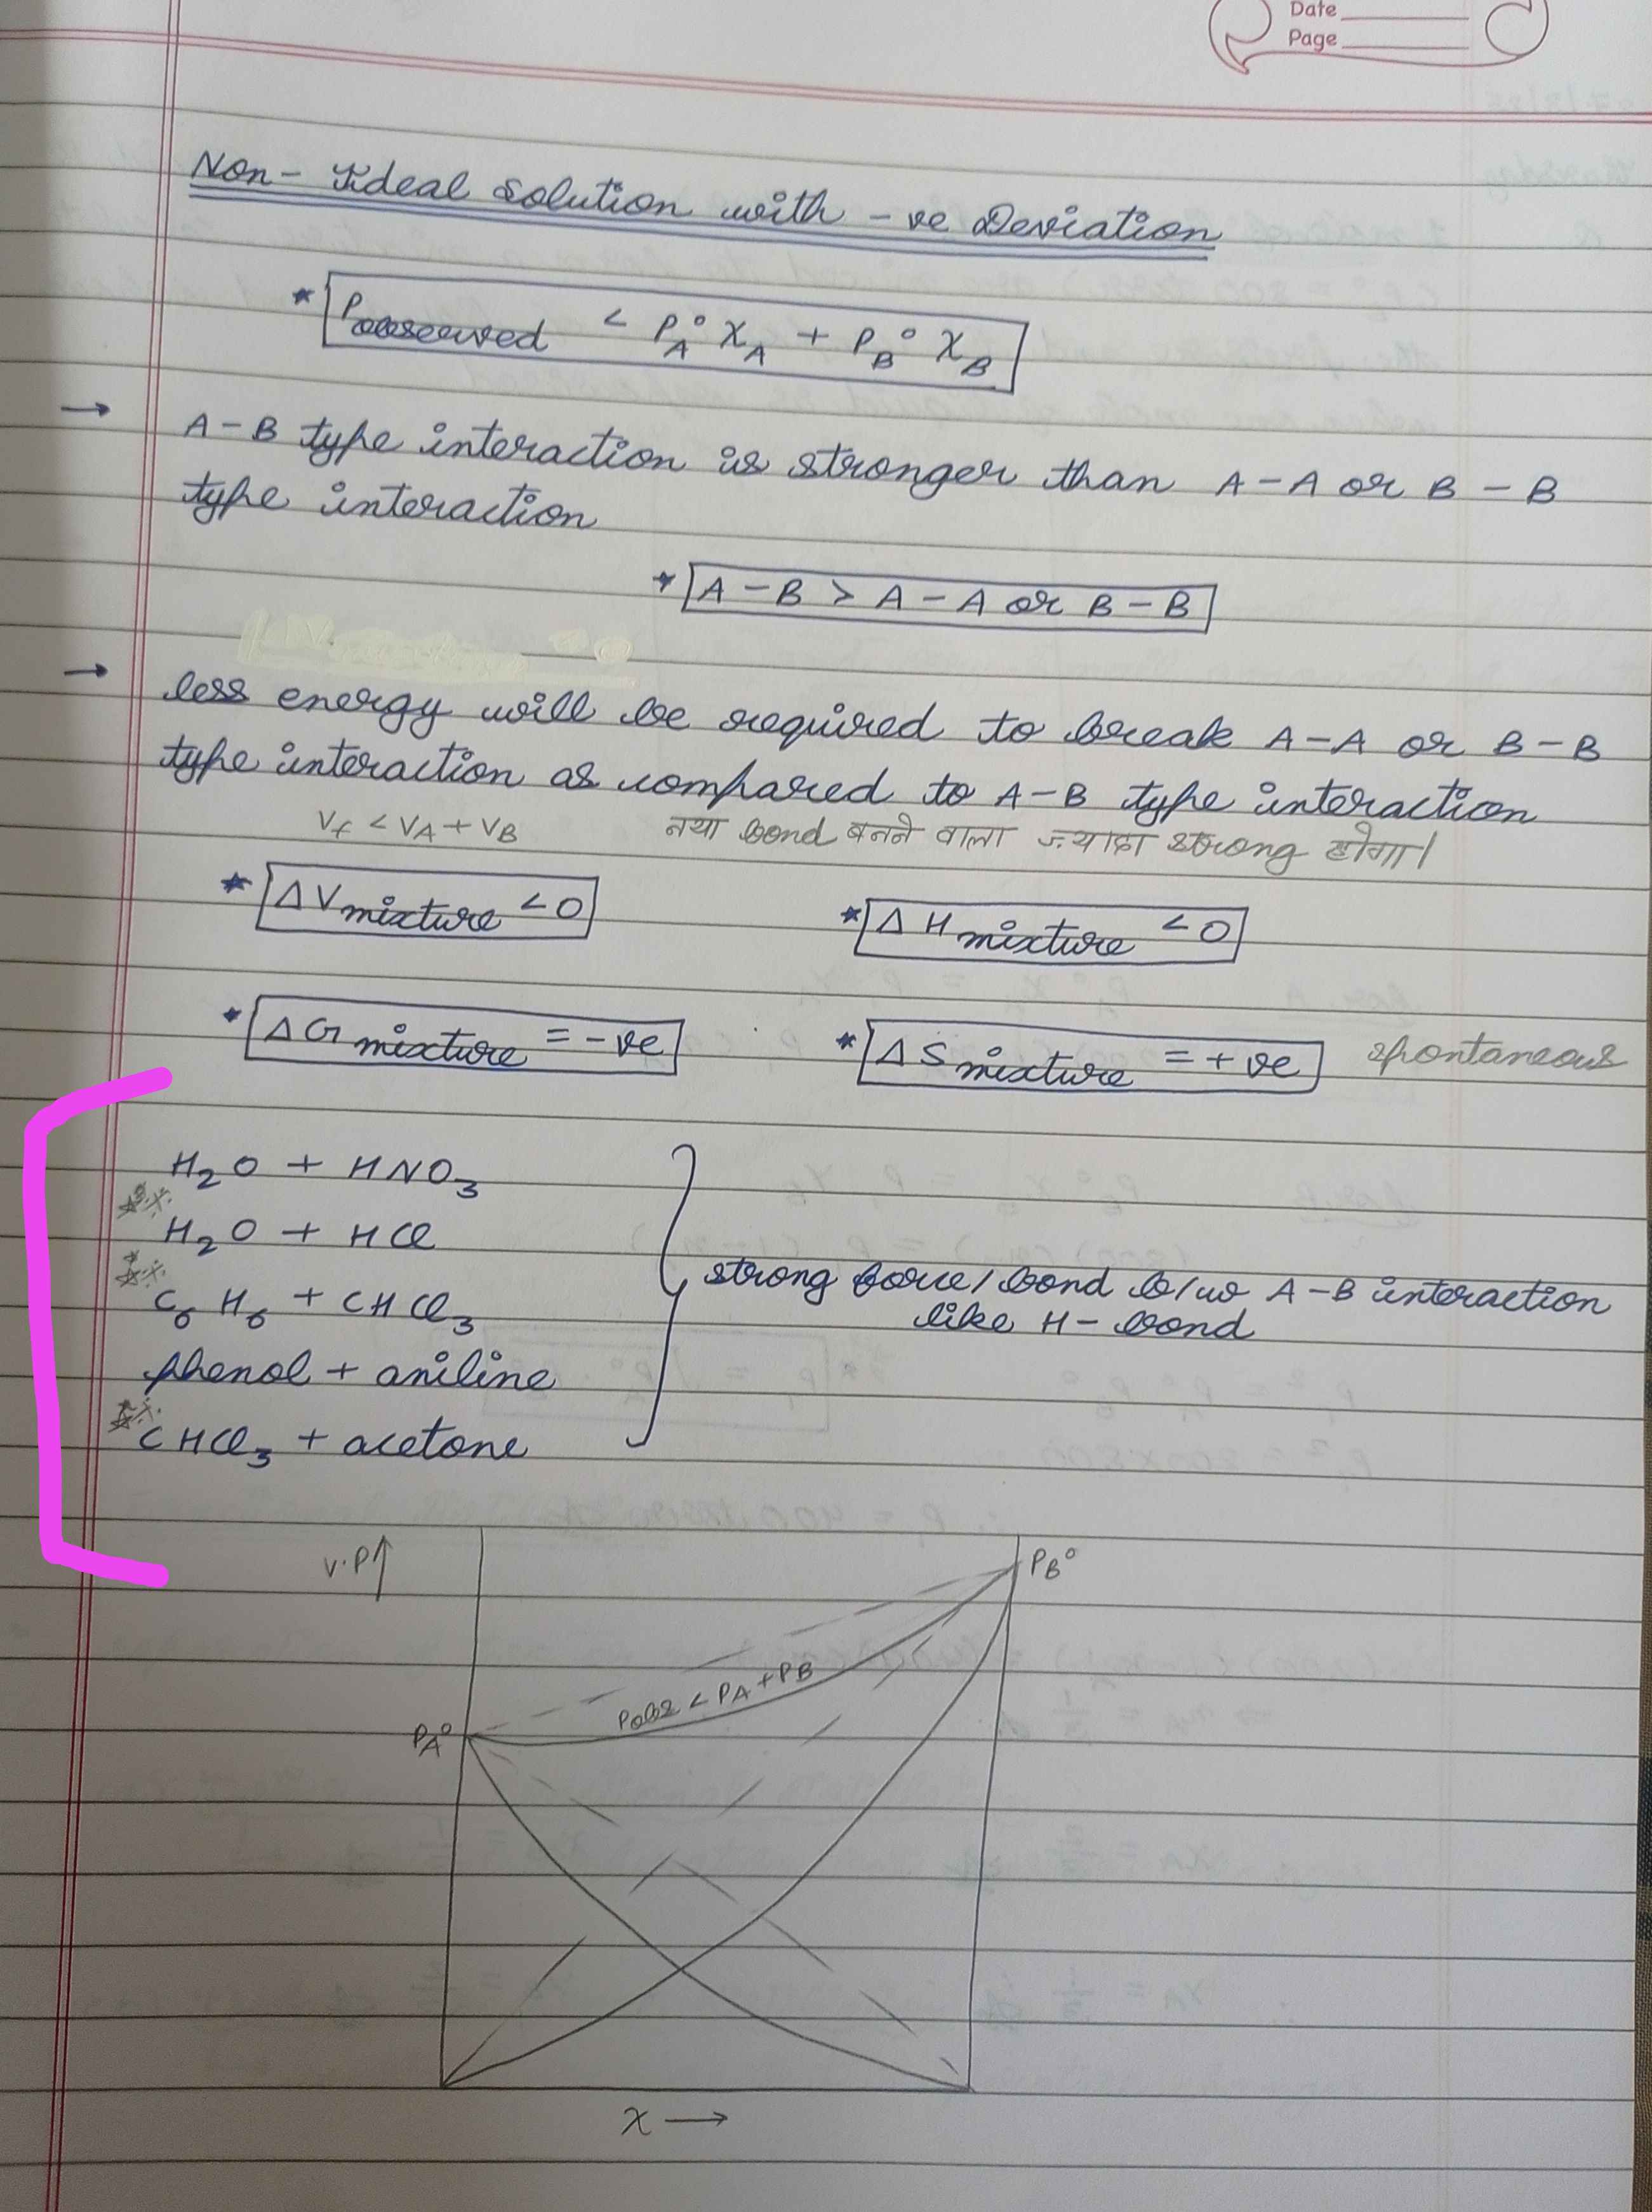 Date
Page
Non-Ideal Solution with -ve Deviation
* Pobserved < PA° XA + PB° XB
→ A-B type interaction is stronger than A-A or B-B
type interaction
* A-B > A-A or B-B
→ less energy will be required to break A-A or B-B
type interaction as compared to A-B type interaction
Vf < VA + VB नया bond बनने वाला ज्यादा strong होगा।
* ΔVmixture <0 * ΔHmixture <0
* ΔGmixture = -ve * ΔSmixture = +ve spontaneous
H₂O + HNO₃
H₂O + HCl
C₆H₆ + CHCl₃ strong force/bond b/w A-B interaction
like H-bond
phenol + aniline
CHCl₃ + acetone
V.P↑ PB°
Pobs < PA + PB
PA°
x →